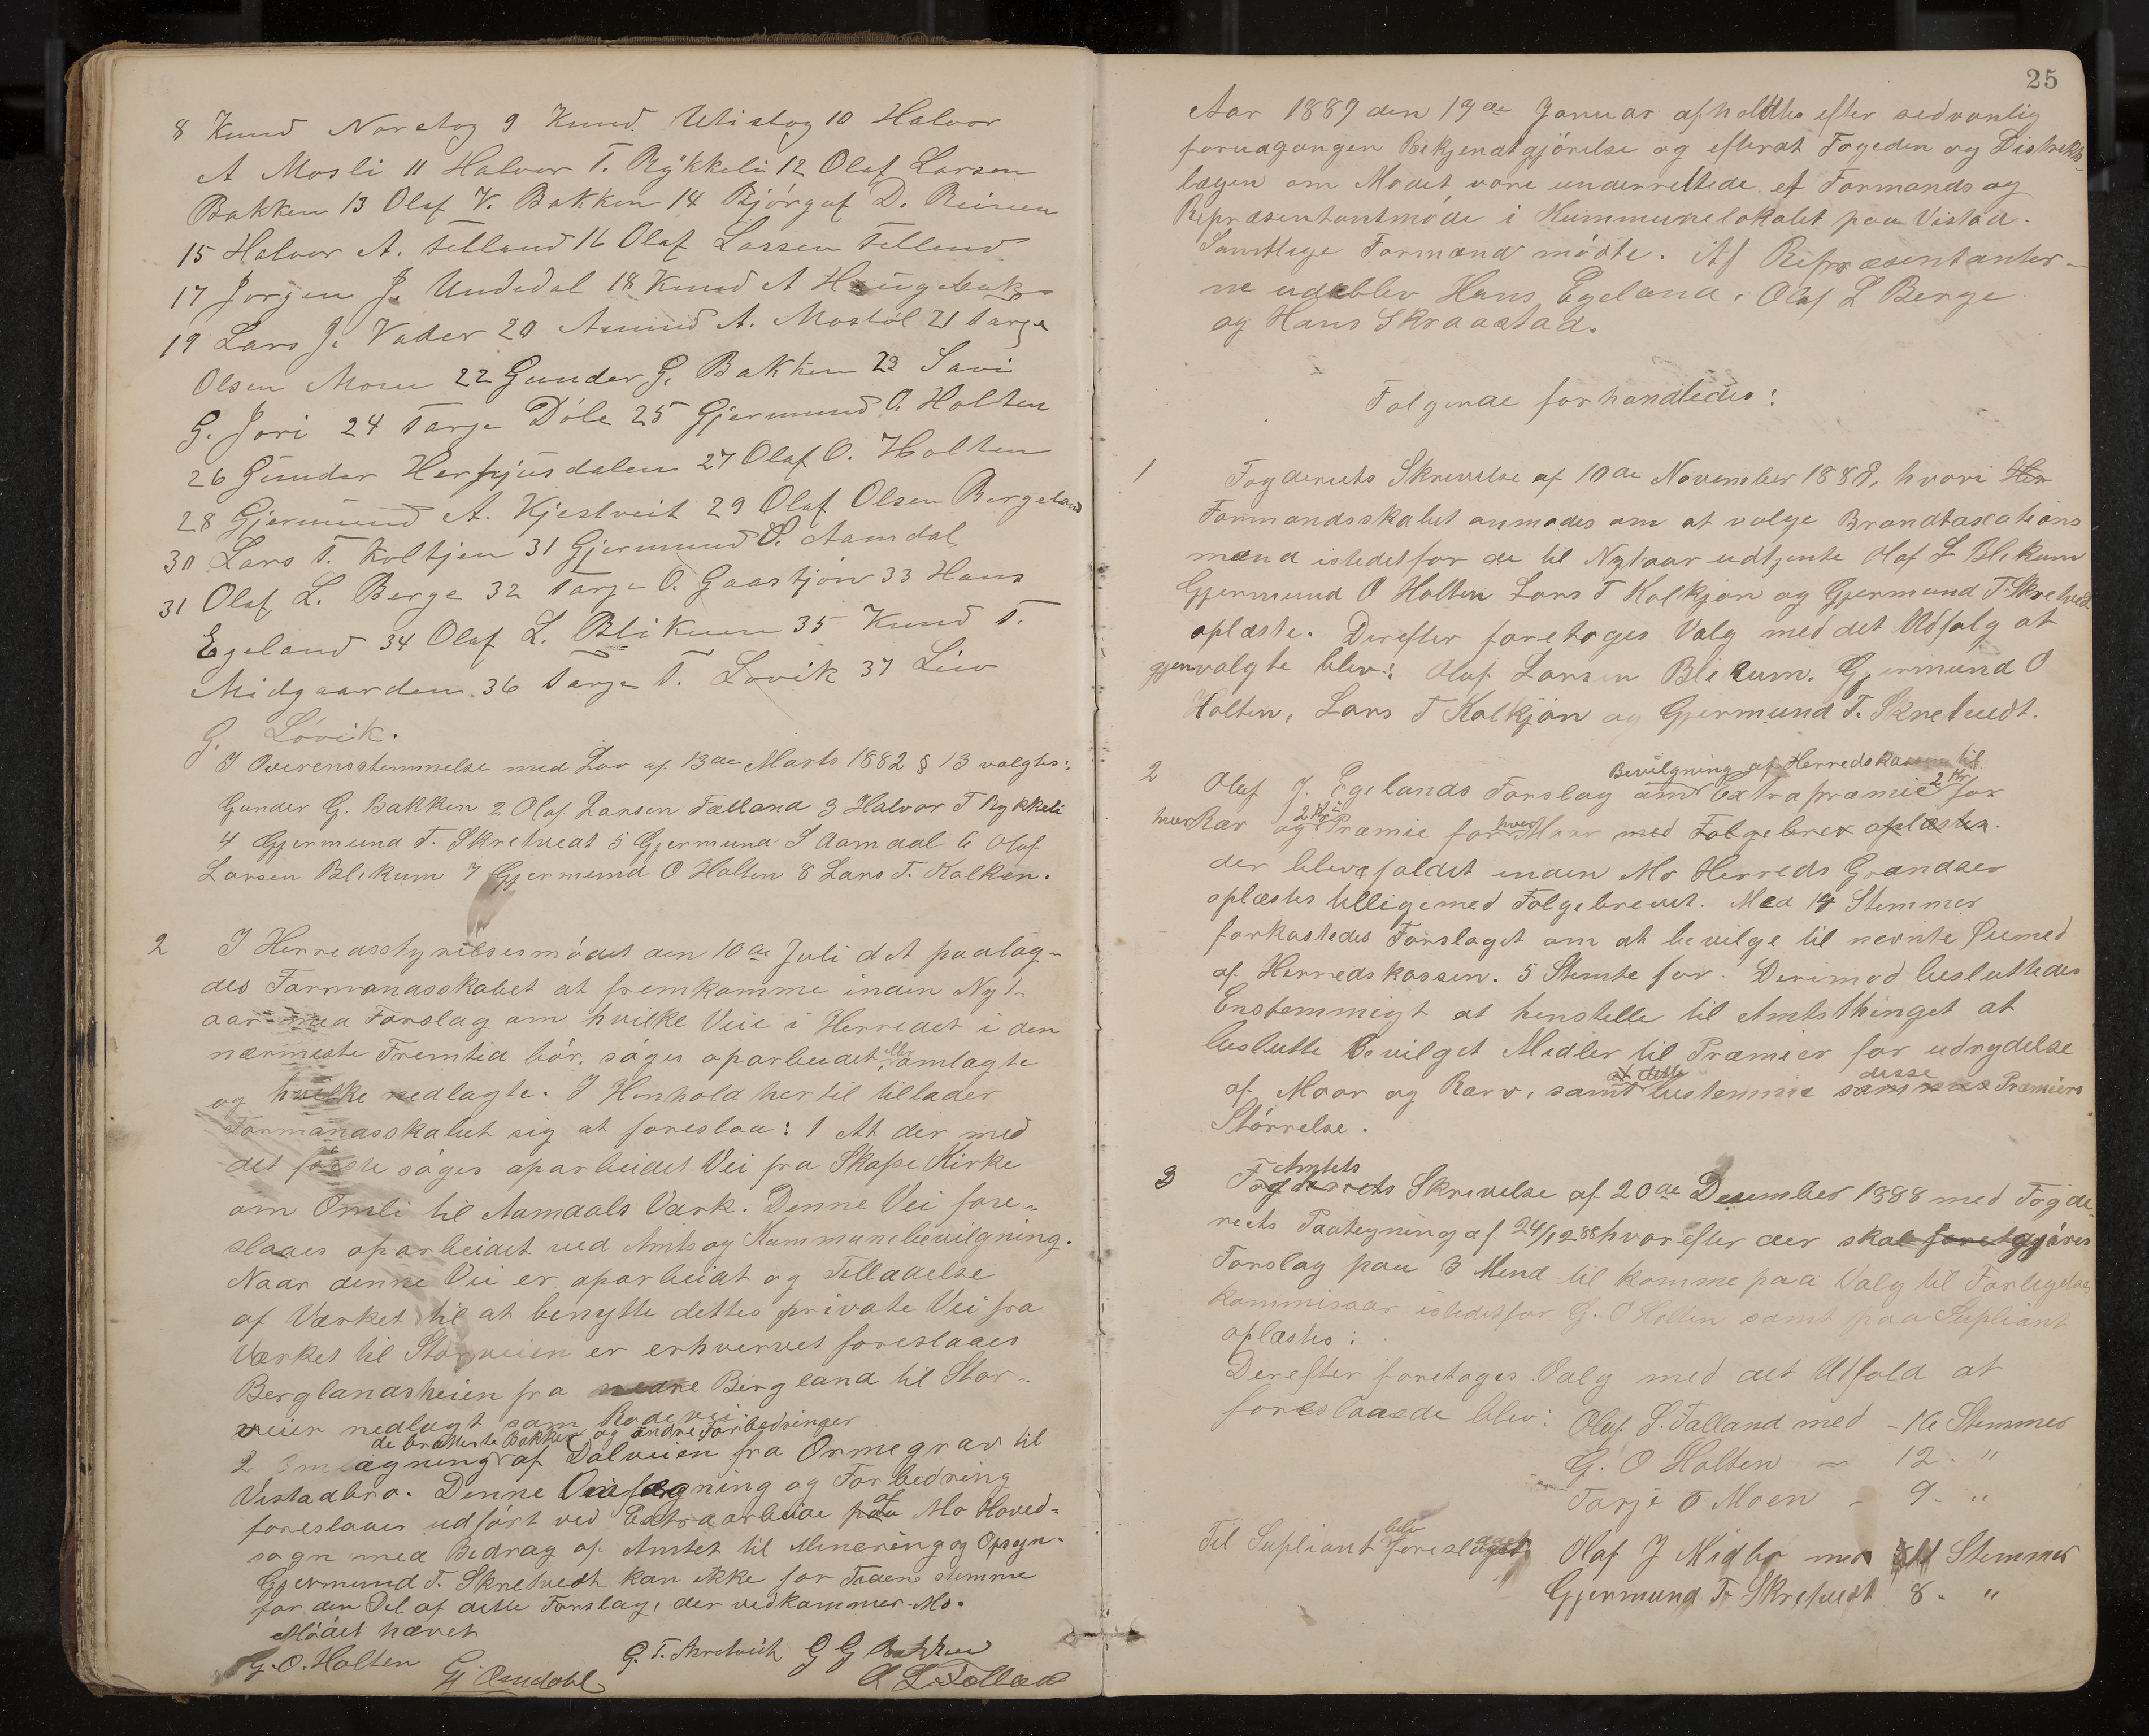 8 Knud Norstog 9 Knud Utistog 10 Halvor
A Mosli 11 Halvor T. Rykkeli 12 Olaf Larsen
Bakken 13 Olaf V. Bakken 14 Bjørguf D. Reinen
15 Halvor A. Felland 16 Olaf Larsen Felland
17 Jørgen J. Undedal 18 Knud A Haugebak
19 Lars J. Vader 20 Amund A. Mostøl 21 Targe
Olsen Moen 22 Gunder G. Bakken 23 Savi
G. Jori 24 Targe Døle 25 Gjermund O. Holten
26 Gunder Herfjusdalen 27 Olaf O. Holten
28 Gjermund A. Kjestveit 29 Olaf Olsen Bergeland
30 Lars T. Koltjen 31 Gjermund S. Aamdal
31 Olaf L. Berge 32 Targe O. Gaastjøn 33 Hans
Egeland 34 Olaf L. Blikum 35 Knud T.
Midgaarden 36 Targe T. Løvik 37 Liev
G. Løvik.
I Overensstemmelse med Lov af 13de Marts 1882 § 13 valgtes:
Gunder G. Bakken 2 Olaf Larsen Fælland 3 Halvor T Rykkeli
4 Gjermund T. Skretvedt 5 Gjermund S Aamdal 6 Olaf
Larsen Blikum 7 Gjermund O Holten 8 Lars T. Kolken.
2 I Herredsstyrelsesmødet den 10de Juli d. A paalag-
des Formandsskabet at fremkomme inden Nyt-
aar med Forslag om hvilke Veie i Herredet i den
nærmeste Fremtid bør søges oparbeidet, eller omlagte
og hvilke nedlagte. I Henhold hertil tillader
Formandsskabet sig at foreslaa: 1 At der med
det første søges oparbeidet Vei fra Skafse Kirke
om Omli til Aamdals Værk. Denne Vei fore-
slaaes oparbeidet ved Amts og Kommunebevilgning.
Naar denne Vei er oparbeidt og Tilladelse
af Værket til at benytte dettes private Vei fra
Værket til Storveien er erhvervet foreslaaes
Berglandsheien fra nedre Bergland til Stor-
veien nedlagt som Rodevei.
de bratteste Bakker og andre Forbedringer
2 Omlægning af Dalveien fra Ormegrav til
Vistadbro. Denne Veiomlægning og Forbedring
foreslaaes udført ved Extraarbeide af Mo Hoved-
sogn med Bidrag af Amtet til Minering og Opsyn.
Gjermund T. Skretvedt kan ikke for Tiden stemme
for den Del af dette Forslag, der vedkommer Mo.
Mødet hævet
G. O. Holten G. Omdahl G. T. Skretveit G G Bakken
O L Felland
25
Aar 1889 den 19de Januar afholdtes efter sedvanlig
forudgangen Bekjendtgjörelse og efterat Fogeden og Distrikts-
lægen om Mødet vare underrettede et Formands og
Repræsentantmøde i Kummunelokalet paa Vistad.
Samtlige Formænd mødte. Af Repræsentanter-
ne udeblev Hans Egeland, Olaf L Berge
og Hans Skraastad.
Følgende forhandledes:
1 Fogderiets Skrivelse af 10de November 1888, hvori Her
Formandsskabet anmodes om at vælge Brandtaxations
mænd istedetfor de til Nytaar udtjente Olaf L Blikum
Gjermund O Holten Lars T Kolkjøn og Gjermund T. Skretvedt
oplæste. Derefter foretoges Valg med det Udfalg at
gjenvalgte blev: Olaf Larsen Blikum, Gjermund O
Holten, Lars T Kolkjøn og Gjermund T. Skretvedt.
2 Bevilgning af Herredskassen til
Olaf J. Egelands Forslag om Extrapræmie 2 Kr for
hver Ræv og 2 Kr i Præmie for hver Maar med Følgebrev oplæstes.
der blev fældet inden Mo Herreds Grændser
oplæstes tilligemed Følgebrevet. Med 19 Stemmer
forkastedes Forslaget om at bevilge til nevnte Øiemed
af Herredskassen. 5 Stemte for. Derimod besluttedes
Enstemmigt at henstille til Amtsthinget at
beslutte bevilget Midler til Præmier for udrydelse
af Maar og Ræv, samt at dette bestemme sammes disse Præmiers
Størrelse.
3 Fogderiets Amtets Skrivelse af 20de Desember 1888 med Fogde-
riets Paategning af 24/12 88 hvorefter der skal foret gjøres
Forslag paa 3 Mend til komme paa Valg til Forligelses
kommissær istedetfor G. O Holten samt paa Supliant
oplæstes:
Derefter foretoges Valg med det Utfald at
foreslaaede blev: Olaf L. Falland med - 16 Stemmer
G. O Holten - 12. "
Tarje O Moen - 9. "
Til Supliant blev foreslaaet Olaf J Midbø med 11 Stemmer
Gjermund T. Skretvedt 8. "